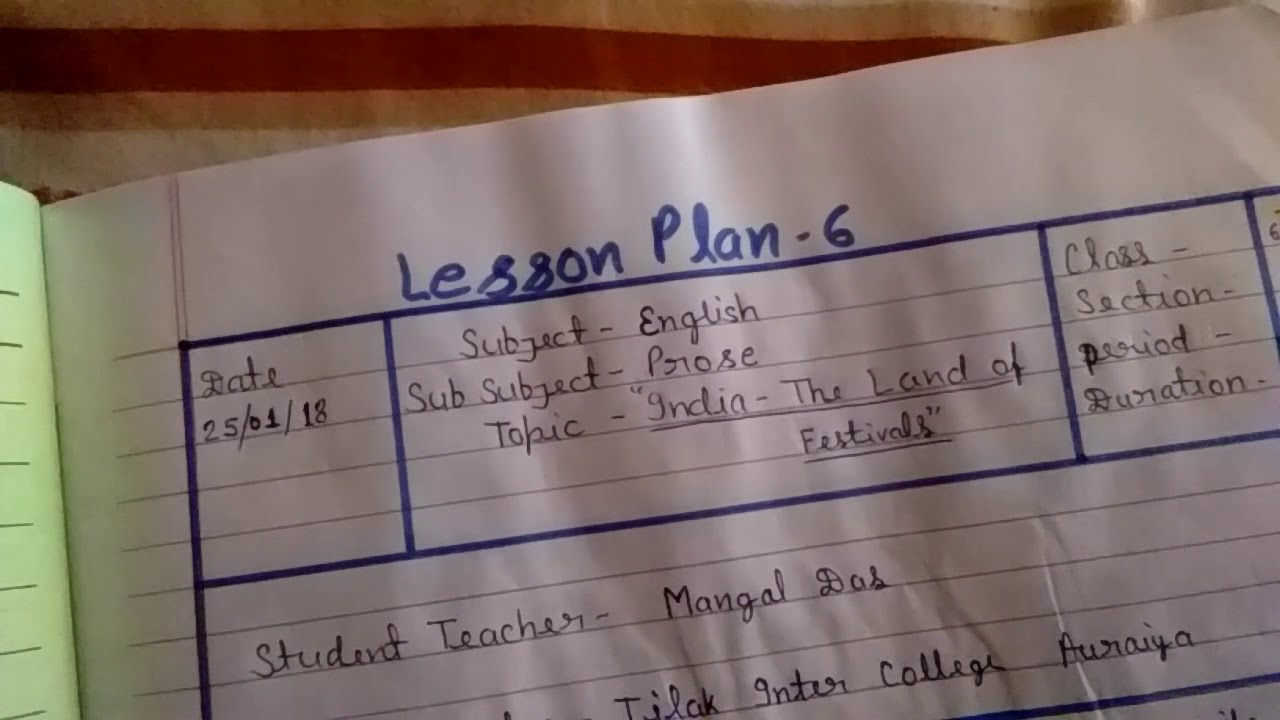 Lesson Plan - 6
Date
25/01/18
Subject - English
Sub Subject - Prose
Topic - "India - The Land of
Festivals"
Class -
Section -
Period -
Duration -
6
Student Teacher - Mangal Das
Tilak Inter College Auraiya